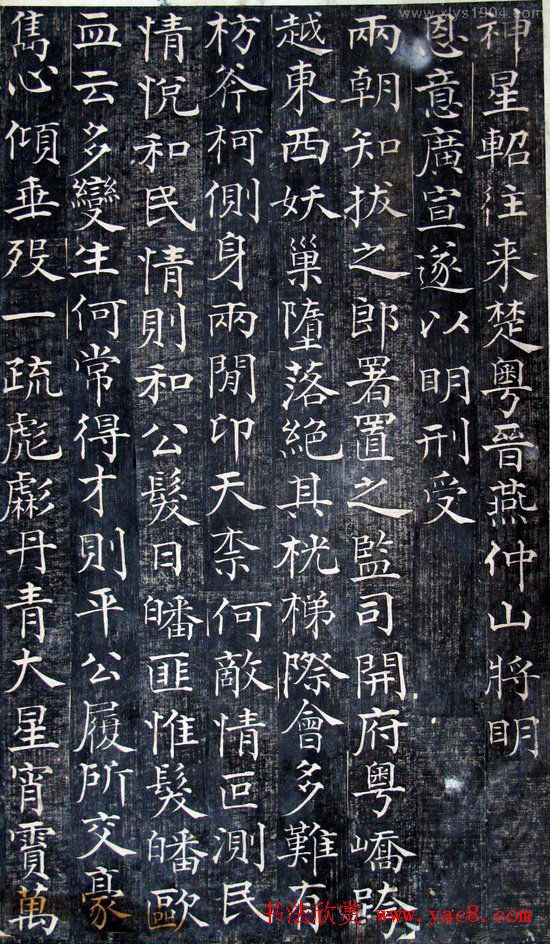 神星軺往来楚粤晉燕仲山將明
恩意廣宣遂以明刑受
兩朝知拔之郎署置之監司開府粤嶠跨
越東西妖巢墮落絶其桄梯際會多難有
枋斧柯側身兩間卬天柰何敵情叵測民
情悅和民情則和公髮日皤匪惟髮皤歐
血云多變生何常得才則平公履所交豪
雋心傾垂歿一疏彪彪丹青大星宵霣萬
www.xlys1904.com
书法欣赏 www.yac8.com